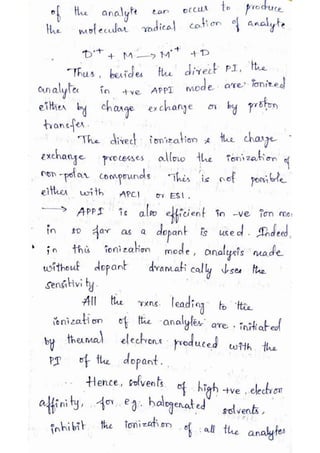 of the analyte can occur to produce
the molecular radical cation of analyte
D⁺· + M ⟶ M⁺· + D
Thus, besides the direct PI, the
analytes in +ve APPI mode are ionized
either by charge exchange or by proton
transfer.
The direct ionization & the charge
exchange processes allow the ionization of
non-polar compounds. This is not possible
either with APCI or ESI.
⟶ APPI is also efficient in -ve ion
in so far as a dopant is used. Indeed,
in this ionization mode, analysis made
without dopant dramatically ↓ses the
sensitivity.
All the rxns. leading to the
ionization of the analytes are initiated
by thermal electrons produced with the
PI of the dopant.
Hence, solvents of high +ve electron
affinity, for e.g. halogenated solvents,
inhibit the ionization of all the analytes